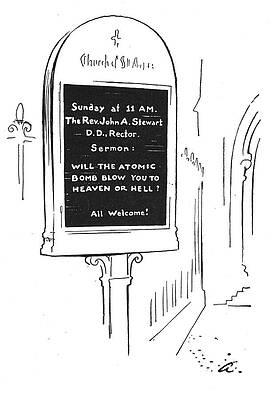 Church of
Sunday at 11 AM.
The Rev. John A. Stewart
D.D., Rector.
Sermon:
WILL THE ATOMIC
BOMB BLOW YOU TO
HEAVEN OR HELL?
All Welcome!